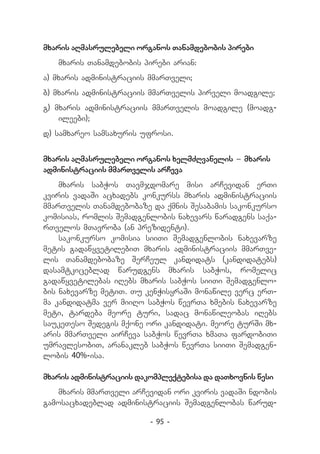 მხარის აღმასრულებელი ორგანოს თანამდებობის პირები
მხარის თანამდებობის პირები არიან:
ა) მხარის ადმინისტრაციის მმართველი;
ბ) მხარის ადმინისტრაციის მმართველის პირველი მოადგილე;
გ) მხარის ადმინისტრაციის მმართველის მოადგილე (მოადგ-
ილეები);
დ) სამხარეო სამსახურის უფროსი.
მხარის აღმასრულებელი ორგანოს ხელმძღვანელის – მხარის
ადმინისტრაციის მმართველის არჩევა
მხარის საბჭოს თავმჯდომარე მისი არჩევიდან ერთი
კვირის ვადაში აცხადებს კონკურსს მხარის ადმინისტრაციის
მმართველის თანამდებობაზე და ქმნის შესაბამის საკონკურსო
კომისიას, რომლის შემადგენლობის ნახევარს წარადგენს საქა-
რთველოს მთავრობა (ან პრეზიდენტი).
საკონკურსო კომისია სიითი შემადგენლობის ნახევარზე
მეტის გადაწყვეტილებით მხარის ადმინისტრაციის მმართვე-
ლის თანამდებობაზე შერჩეულ კანდიდატს (კანდიდატებს)
დასამტკიცებლად წარუდგენს მხარის საბჭოს, რომელიც
გადაწყვეტილებას იღებს მხარის საბჭოს სიითი შემადგენლო-
ბის ნახევარზე მეტით. თუ კენჭისყრაში მონაწილე ვერც ერთ-
მა კანდიდატმა ვერ მიიღო საბჭოს წევრთა ხმების ნახევარზე
მეტი, ტარდება მეორე ტური, სადაც მონაწილეობას იღებს
საუკეთესო შედეგის მქონე ორი კანდიდატი. მეორე ტურში მხ-
არის მმართველი აირჩევა საბჭოს წევრთა ხმათა ფარდობითი
უმრავლესობით, არანაკლებ საბჭოს წევრთა სიითი შემადგენ-
ლობის 40%-ისა.
მხარის ადმინისტრაციის დაკომპლექტებისა და დათხოვნის წესი
მხარის მმართველი არჩევიდან ორი კვირის ვადაში ნდობის
გამოსაცხადებლად ადმინისტრაციის შემადგენლობას წარუდ-
- 95 -